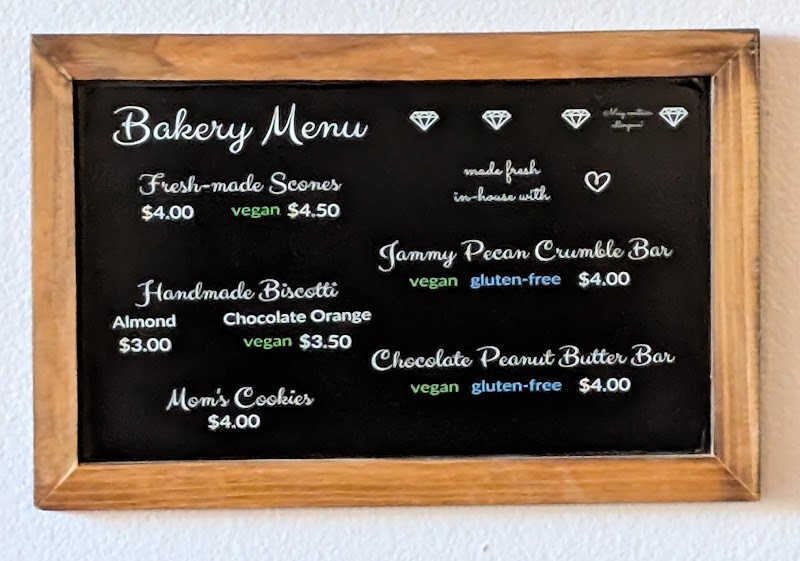 Bakery Menu
May contain
allergens!
Fresh-made Scones
$4.00 vegan $4.50
made fresh
in-house with
Handmade Biscotti
Almond Chocolate Orange
$3.00 vegan $3.50
Mom's Cookies
$4.00
Jammy Pecan Crumble Bar
vegan gluten-free $4.00
Chocolate Peanut Butter Bar
vegan gluten-free $4.00